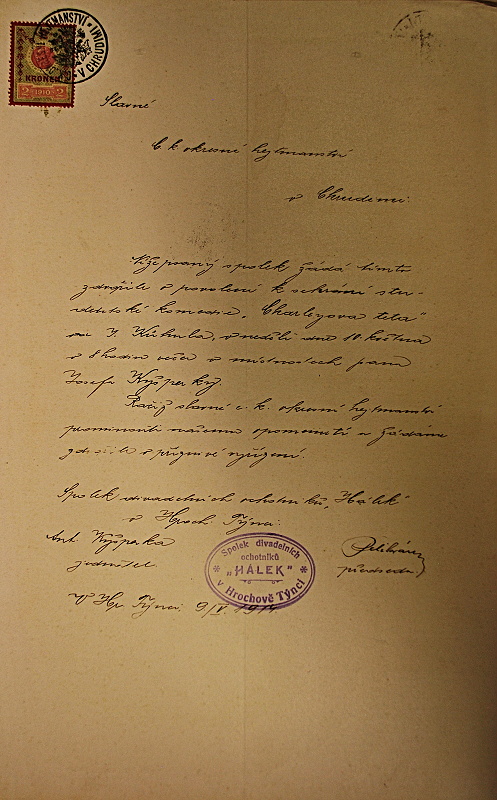 HEJTMANSTVÍ
V CHRUDIMI
KRONEN
2 1910 2
Slavné
C. k. okresní hejtmanství
v Chrudimi.
Níže psaný spolek žádá tímto
zdvořile o povolení k sehrání stu-
dentské komedie „Charleyova teta"
v neděli dne 10. května
o 8 hodin večer v místnostech pana
Josefa Vyšperky.
Račiž slavné c. k. okresní hejtmanství
prominouti našemu opomenutí a žádáme
zdvořile o příznivé vyřízení.
Spolek divadelních ochotníků „Hálek"
v Hroch. Týnci.
Ant. Vyšperka
jednatel.
předseda.
Spolek divadelních
ochotníků
„HÁLEK"
v Hrochově Týnci
V Hr. Týnci 9/V. 1914